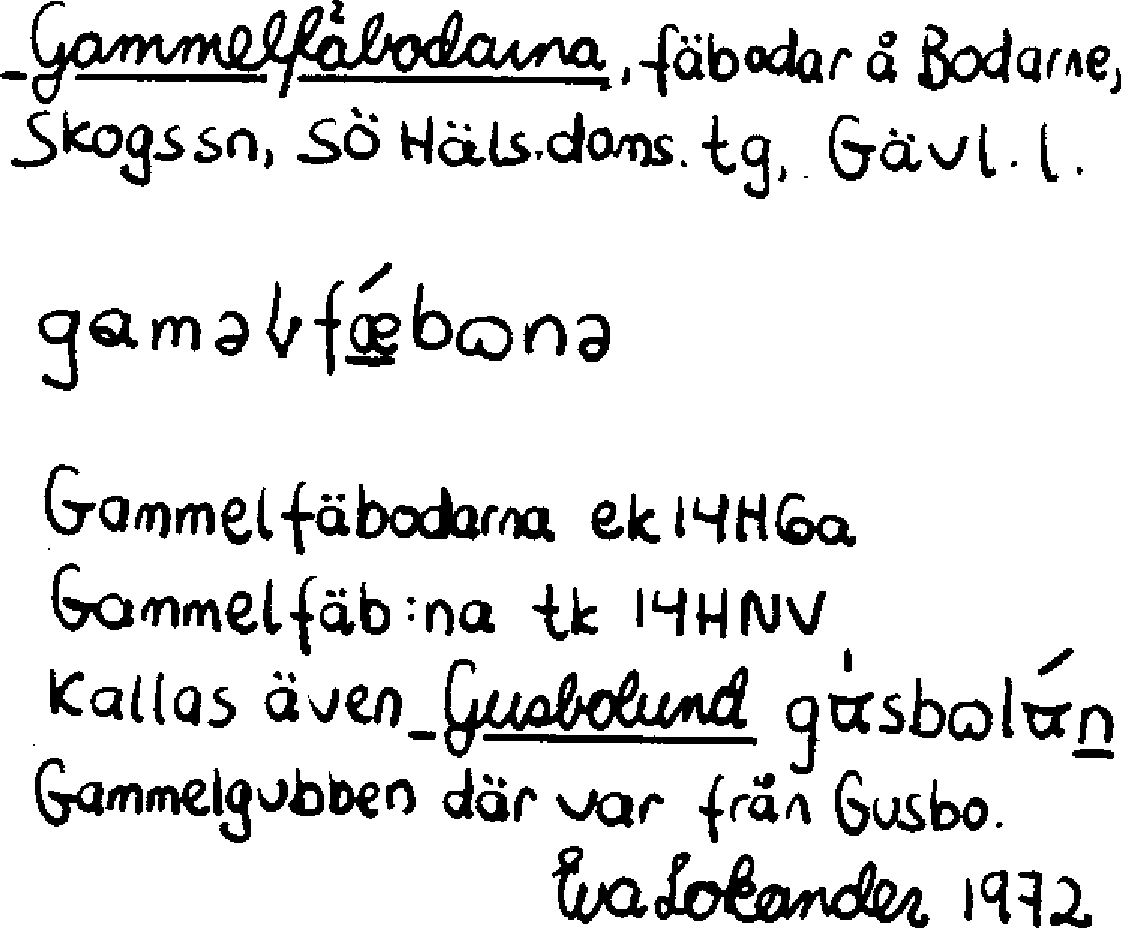 _Gammelfäbodarna, fäbodar å Bodarne,
Skogs sn, Sö Häls. doms. tg, Gävl. l.
Gammelfäbodarna ek 14H6a
Gammelfäb:na tk 14HNV
Kallas även _Gusbolund
Gammelgubben där var från Gusbo.
Eva Lokander 1972